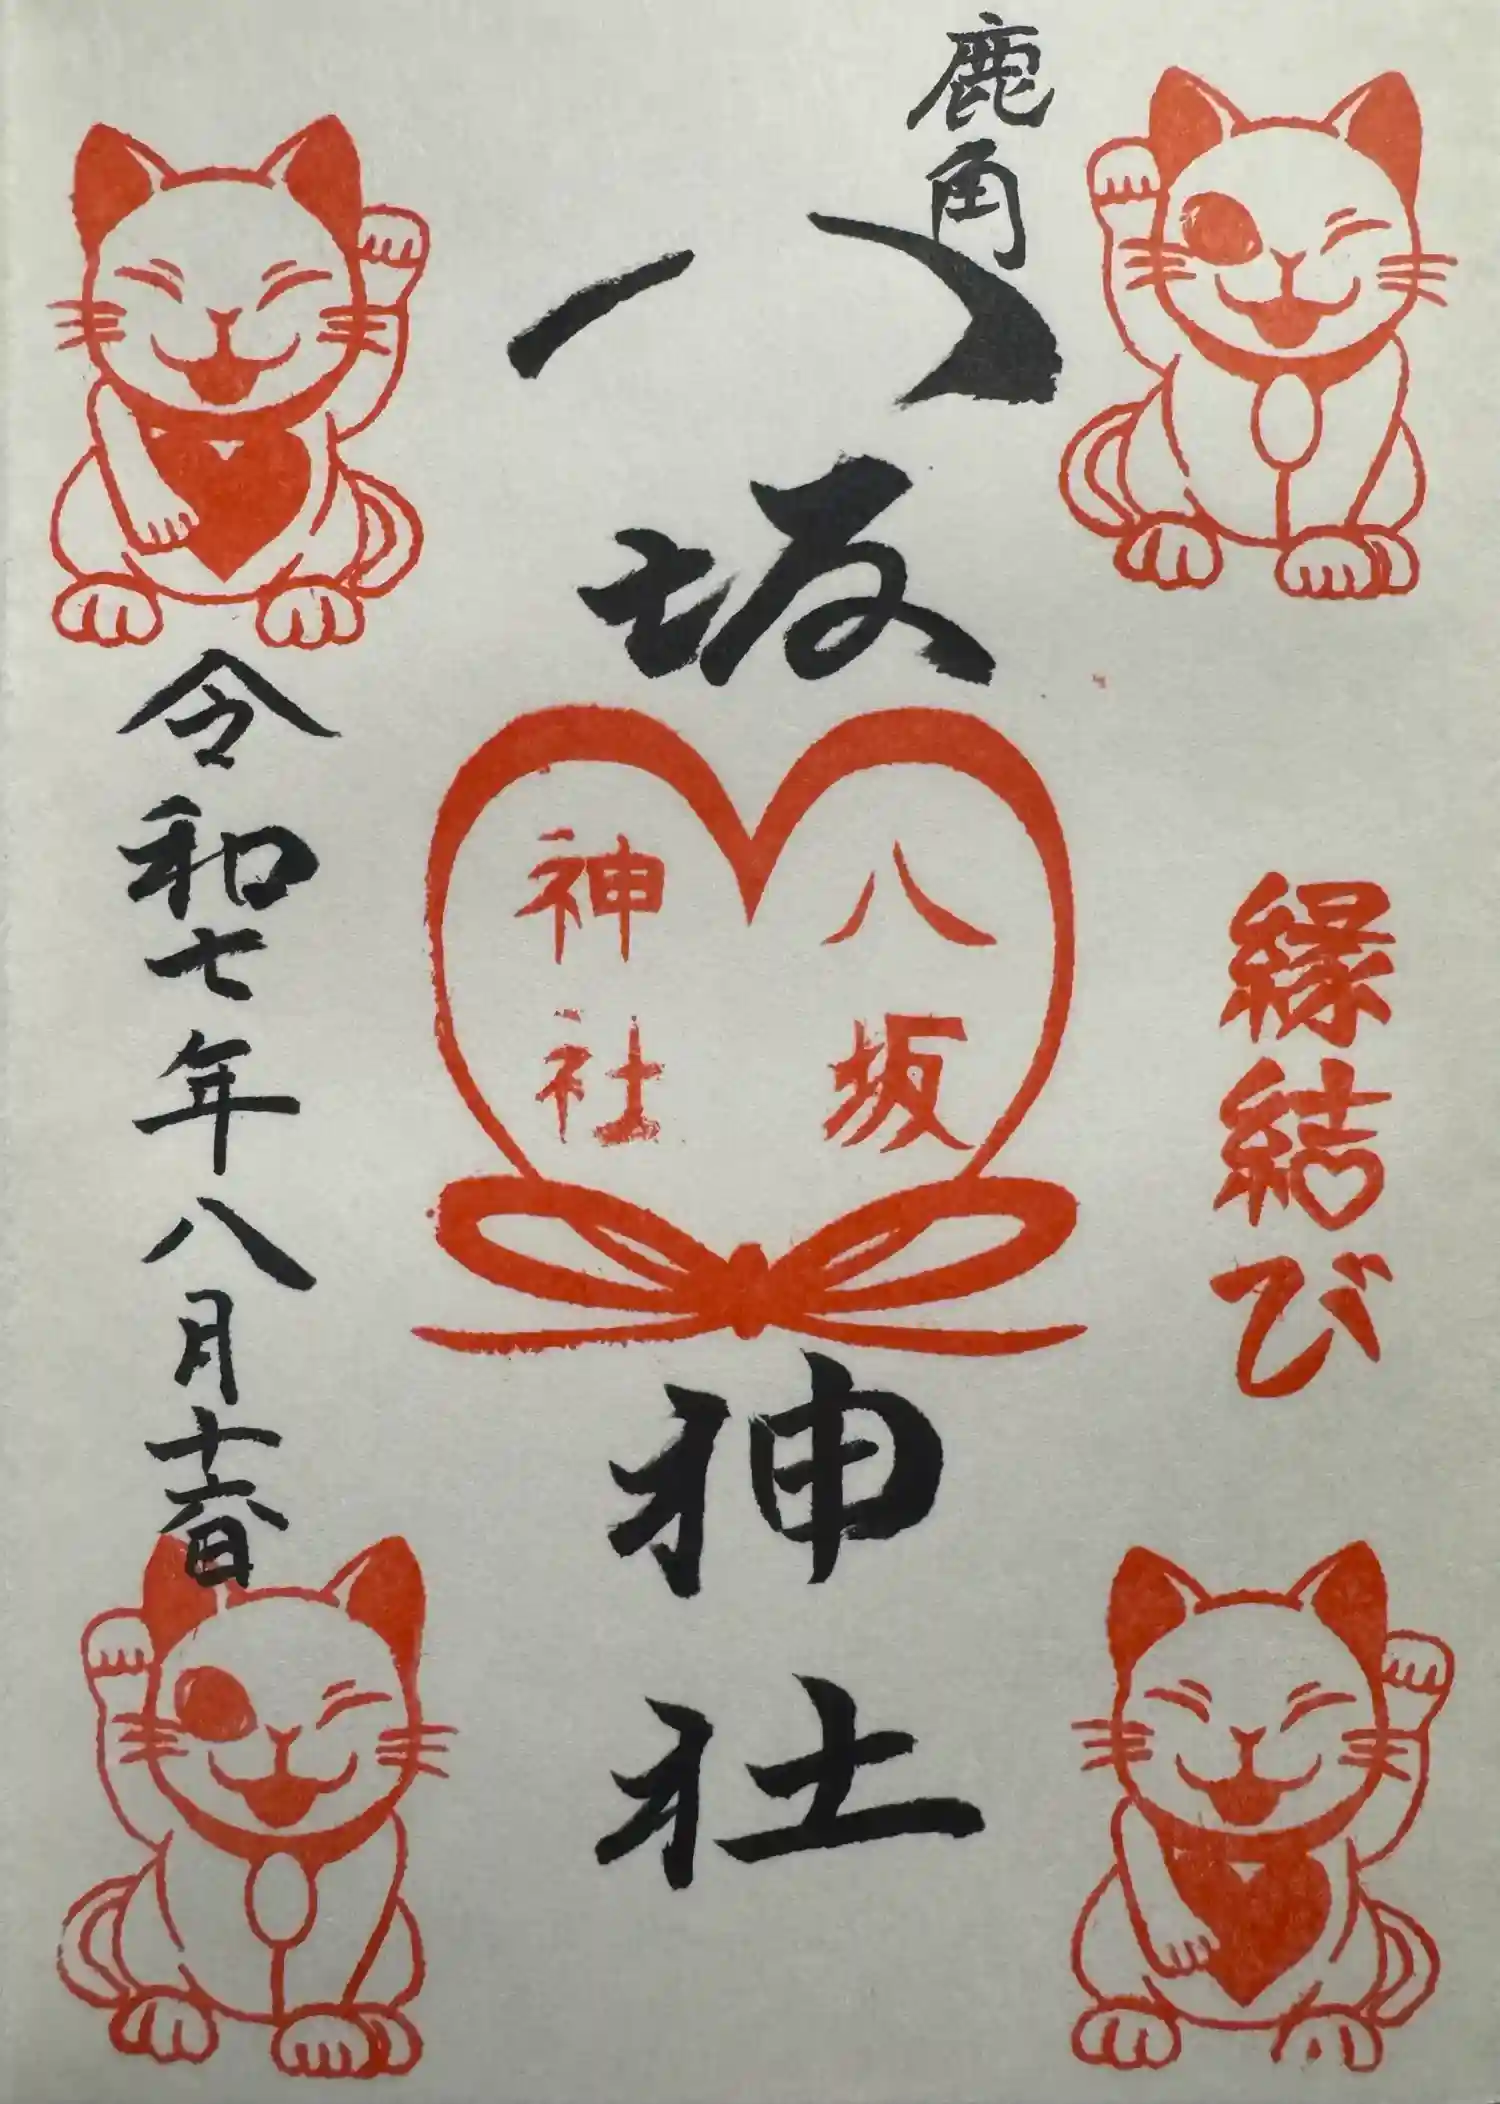 鹿角
八坂神社
縁結び
八坂
神社
令和七年八月十六日